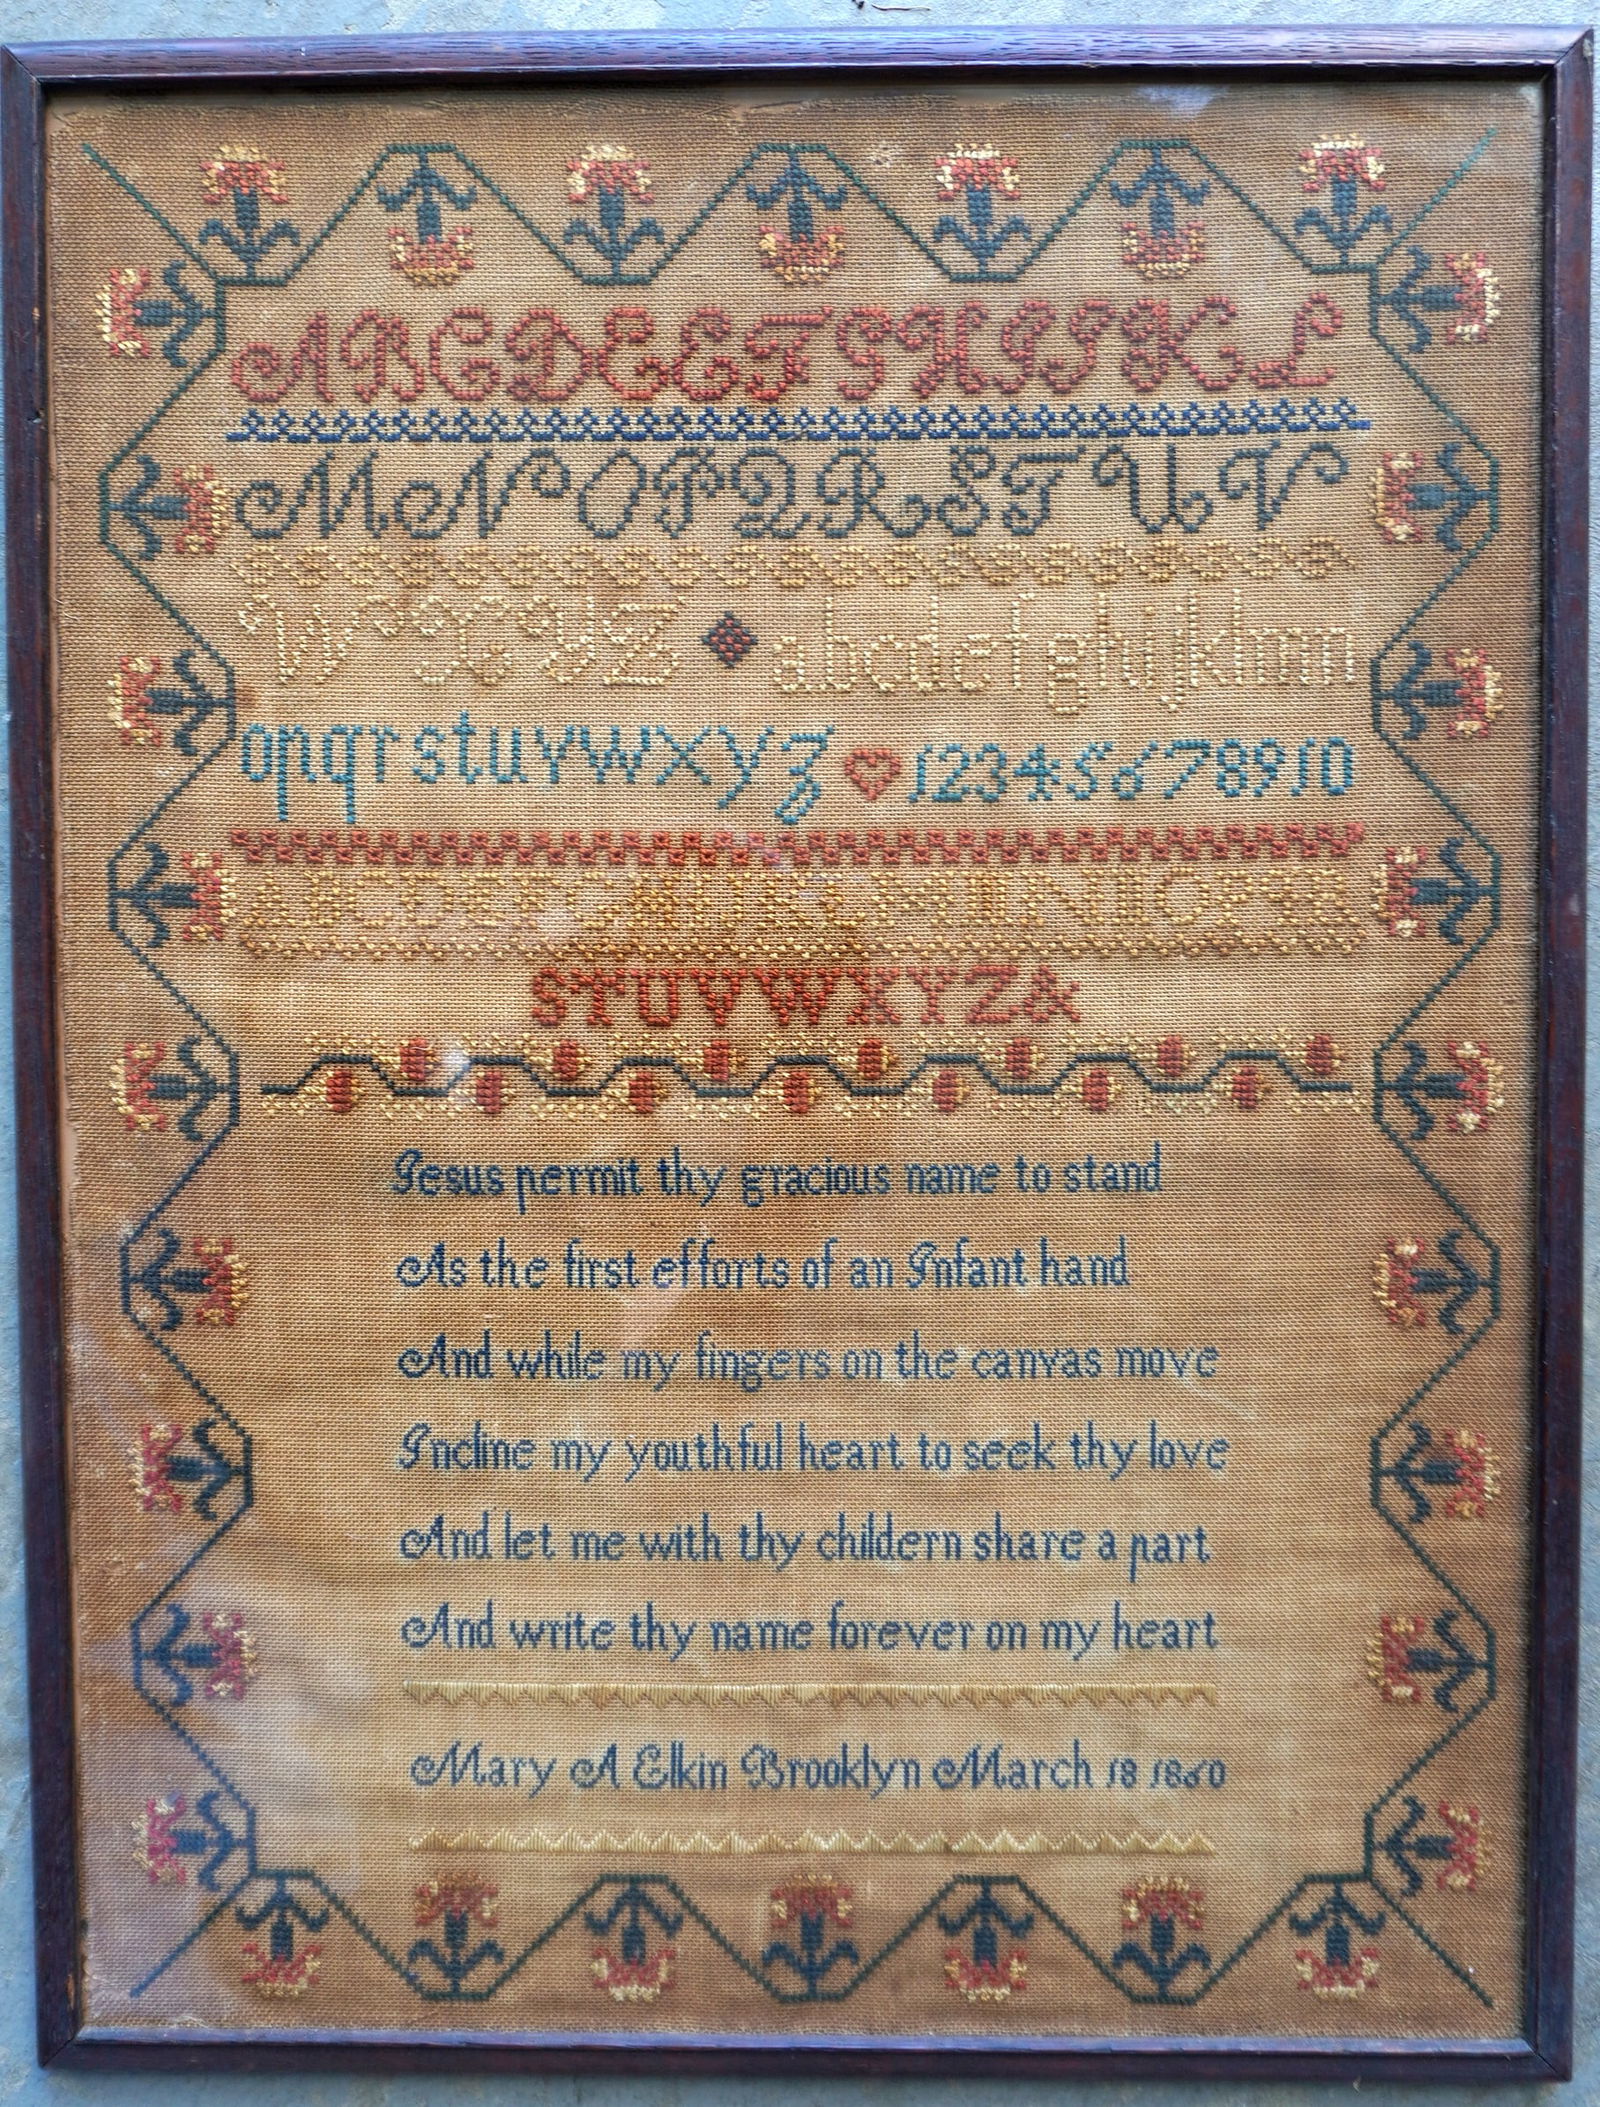 ABCDEEFGHIJKL
MNOPQRSTUV
WXYZ abcdefghijklmn
opqrstuvwxyz 12345678910
ABCDEFGHIJKLMNOPQR
STUVWXYZ&
Jesus permit thy gracious name to stand
As the first efforts of an Infant hand
And while my fingers on the canvas move
Incline my youthful heart to seek thy love
And let me with thy childern share a part
And write thy name forever on my heart
Mary A Elkin Brooklyn March 18 1860